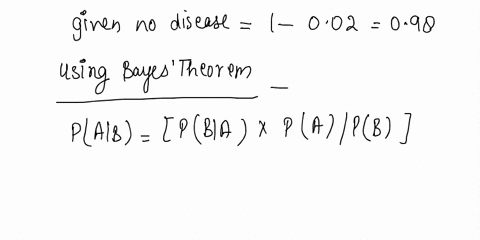 given no disease = 1 - 0.02 = 0.98
Using Bayes' Theorem -
P(A|B) = [P(B|A) × P(A)/P(B)]